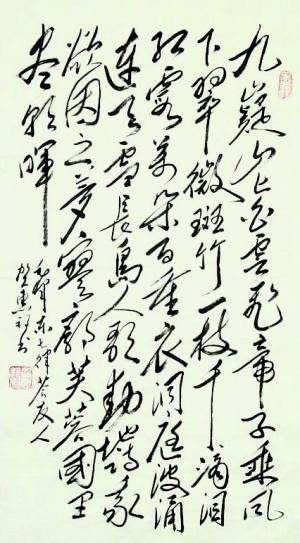 九嶷山上白雲飛帝子乘风
下翠微斑竹一枝千滴泪
紅霞萬朵百重衣洞庭波涌
連天雪長島人歌動地詩我
欲因之夢寥廓芙蓉國里
盡朝暉
毛澤東七律答友人
書